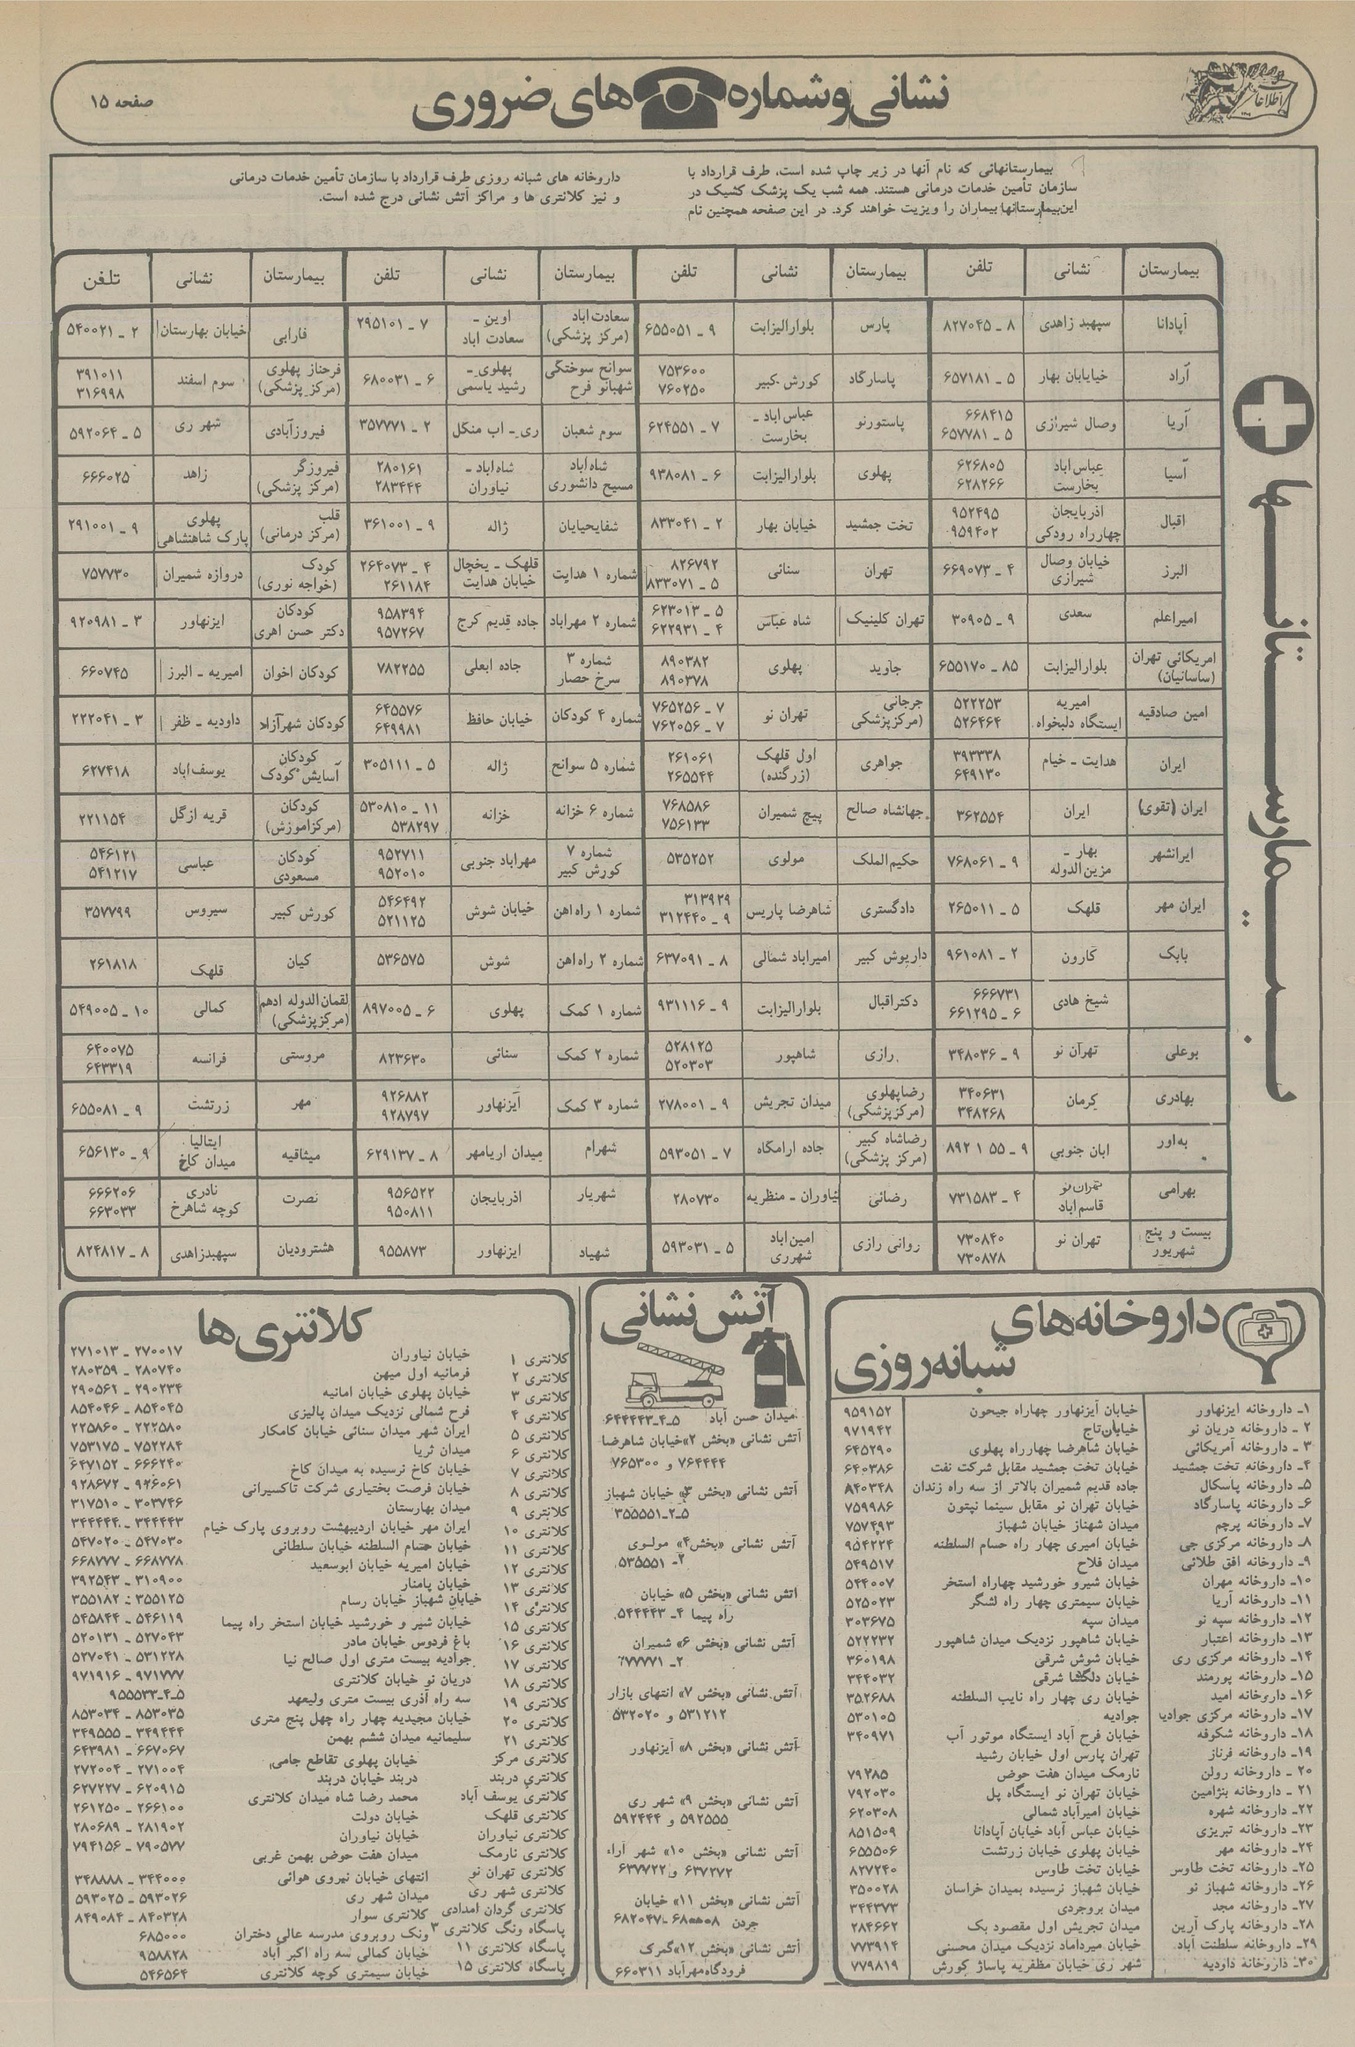 اطلاعات
نشانی و شماره های ضروری
صفحه ۱۵
بیمارستانهائی که نام آنها در زیر چاپ شده است، طرف قرارداد با
سازمان تأمین خدمات درمانی هستند. همه شب یک پزشک کشیک در
این بیمارستانها بیماران را ویزیت خواهند کرد. در این صفحه همچنین نام
داروخانه های شبانه روزی طرف قرارداد با سازمان تأمین خدمات درمانی
و نیز کلانتری ها و مراکز آتش نشانی درج شده است.
بیمارستانها
بیمارستان نشانی تلفن بیمارستان نشانی تلفن بیمارستان نشانی تلفن بیمارستان نشانی تلفن
آپادانا سپهبد زاهدی ۸ - ۸۲۷۰۴۵ پارس بلوارالیزابت ۹ - ۶۵۵۰۵۱ سعادت اباد (مرکز پزشکی) اوین - سعادت اباد ۷ - ۲۹۵۱۰۱ فارابی خیابان بهارستان ۲ - ۵۴۰۰۲۱
آراد خیایابان بهار ۵ - ۶۵۷۱۸۱ پاسارگاد کورش کبیر ۷۵۳۶۰۰ ۷۶۰۲۵۰ سوانح سوختگی شهبانو فرح پهلوی - رشید یاسمی ۶ - ۶۸۰۰۳۱ فرحناز پهلوی (مرکز پزشکی) سوم اسفند ۳۹۱۰۱۱ ۳۱۶۹۹۸
آریا وصال شیرازی ۶۶۸۴۱۵ ۵ - ۶۵۷۷۸۱ پاستورنو عباس اباد - بخارست ۷ - ۶۲۴۵۵۱ سوم شعبان ری - اب منگل ۲ - ۳۵۷۷۷۱ فیروزآبادی شهر ری ۵ - ۵۹۲۰۶۴
آسیا عباس اباد بخارست ۶۲۶۸۰۵ ۶۲۸۲۶۶ پهلوی بلوارالیزابت ۶ - ۹۳۸۰۸۱ شاه اباد مسیح دانشوری شاه اباد - نیاوران ۲۸۰۱۶۱ ۲۸۳۴۴۴ فیروزگر (مرکز پزشکی) زاهد ۶۶۶۰۲۵
اقبال اذربایجان چهارراه رودکی ۹۵۲۴۹۵ ۹۵۹۴۰۲ تخت جمشید خیابان بهار ۲ - ۸۳۳۰۴۱ شفایحیایان ژاله ۹ - ۳۶۱۰۰۱ قلب (مرکز درمانی) پهلوی پارک شاهنشاهی ۹ - ۲۹۱۰۰۱
البرز خیابان وصال شیرازی ۴ - ۶۶۹۰۷۳ تهران سنائی ۸۲۶۷۹۲ ۵ - ۸۳۳۰۷۱ شماره ۱ هدایت قلهک - یخچال خیابان هدایت ۴ - ۲۶۴۰۷۳ ۲۶۱۱۸۴ کودک (خواجه نوری) دروازه شمیران ۷۵۷۷۳۰
امیراعلم سعدی ۹ - ۳۰۹۰۵ تهران کلینیک شاه عباس ۵ - ۶۲۳۰۱۳ ۴ - ۶۲۲۹۳۱ شماره ۲ مهراباد جاده قدیم کرج ۹۵۸۳۹۴ ۹۵۷۲۶۷ کودکان دکتر حسن اهری ایزنهاور ۳ - ۹۲۰۹۸۱
امریکائی تهران (ساسانیان) بلوارالیزابت ۸۵ - ۶۵۵۱۷۰ جاوید پهلوی ۸۹۰۳۸۲ ۸۹۰۳۷۸ شماره ۳ سرخ حصار جاده ابعلی ۷۸۲۲۵۵ کودکان اخوان امیریه - البرز ۶۶۰۷۴۵
امین صادقیه امیریه ایستگاه دلبخواه ۵۲۲۲۵۳ ۵۲۶۴۶۴ جرجانی (مرکزپزشکی) تهران نو ۷ - ۷۶۵۲۵۶ ۷ - ۷۶۲۰۵۶ شماره ۴ کودکان خیابان حافظ ۶۴۵۵۷۶ ۶۴۹۹۸۱ کودکان شهرآزاد داودیه - ظفر ۳ - ۲۲۲۰۴۱
ایران هدایت - خیام ۳۹۳۳۳۸ ۶۴۹۱۳۰ جواهری اول قلهک (زرگنده) ۲۶۱۰۶۱ ۲۶۵۵۴۴ شماره ۵ سوانح ژاله ۵ - ۳۰۵۱۱۱ کودکان آسایش کودک یوسف اباد ۶۲۷۴۱۸
ایران (تقوی) ایران ۳۶۲۵۵۴ جهانشاه صالح پیچ شمیران ۷۶۸۵۸۶ ۷۵۶۱۳۳ شماره ۶ خزانه خزانه ۱۱ - ۵۳۰۸۱۰ ۵۳۸۲۹۷ کودکان (مرکزاموزش) قریه ازگل ۲۲۱۱۵۴
ایرانشهر بهار - مزین الدوله ۹ - ۷۶۸۰۶۱ حکیم الملک مولوی ۵۳۵۲۵۲ شماره ۷ کورش کبیر مهراباد جنوبی ۹۵۲۷۱۱ ۹۵۲۰۱۰ کودکان مسعودی عباسی ۵۴۶۱۲۱ ۵۴۱۲۱۷
ایران مهر قلهک ۵ - ۲۶۵۰۱۱ دادگستری شاهرضا پاریس ۳۱۳۹۲۹ ۹ - ۳۱۲۴۴۰ شماره ۱ راه اهن خیابان شوش ۵۴۶۴۹۲ ۵۲۱۱۲۵ کورش کبیر سیروس ۳۵۷۷۹۹
بابک کارون ۲ - ۹۶۱۰۸۱ داریوش کبیر امیراباد شمالی ۸ - ۶۳۷۰۹۱ شماره ۲ راه اهن شوش ۵۳۶۵۷۵ کیان قلهک ۲۶۱۸۱۸
شیخ هادی ۶۶۶۷۳۱ ۶ - ۶۶۱۲۹۵ دکتراقبال بلوارالیزابت ۹ - ۹۳۱۱۱۶ شماره ۱ کمک پهلوی ۶ - ۸۹۷۰۰۵ لقمان الدوله ادهم (مرکزپزشکی) کمالی ۱۰ - ۵۴۹۰۰۵
بوعلی تهران نو ۹ - ۳۴۸۰۳۶ رازی شاهپور ۵۲۸۱۲۵ ۵۲۰۳۰۳ شماره ۲ کمک سنائی ۸۲۳۶۳۰ مروستی فرانسه ۶۴۰۰۷۵ ۶۴۳۳۱۹
بهادری کرمان ۳۴۰۶۳۱ ۳۴۸۲۶۸ رضاپهلوی (مرکزپزشکی) میدان تجریش ۹ - ۲۷۸۰۰۱ شماره ۳ کمک آیزنهاور ۹۲۶۸۸۲ ۹۲۸۷۹۷ مهر زرتشت ۹ - ۶۵۵۰۸۱
به‌اور ابان جنوبی ۹ - ۸۹۲۱۵۵ رضاشاه کبیر (مرکز پزشکی) جاده ارامگاه ۷ - ۵۹۳۰۵۱ شهرام میدان اریامهر ۸ - ۶۲۹۱۳۷ میثاقیه ایتالیا میدان کاخ ۹ - ۶۵۶۱۳۰
بهرامی تهران نو قاسم آباد ۴ - ۷۳۱۵۸۳ رضائی نیاوران - منظریه ۲۸۰۷۳۰ شهریار اذربایجان ۹۵۶۵۲۲ ۹۵۰۸۱۱ نصرت نادری کوچه شاهرخ ۶۶۶۲۰۶ ۶۶۳۰۳۳
بیست و پنج شهریور تهران نو ۷۳۰۸۴۰ ۷۳۰۸۷۸ روانی رازی امین‌اباد شهرری ۵ - ۵۹۳۰۳۱ شهیاد ایزنهاور ۹۵۵۸۷۳ هشترودیان سپهبدزاهدی ۸ - ۸۲۴۸۱۷
داروخانه های
شبانه روزی
۱- داروخانه ایزنهاور خیابان آیزنهاور چهاراه جیحون ۹۵۹۱۵۲
۲ - داروخانه دریان نو خیابان تاج ۹۷۱۹۴۲
۳ - داروخانه آمریکائی خیابان شاهرضا چهارراه پهلوی ۶۴۵۲۹۰
۴- داروخانه تخت جمشید خیابان تخت جمشید مقابل شرکت نفت ۶۴۰۳۸۶
۵- داروخانه پاسکال جاده قدیم شمیران بالاتر از سه راه زندان ۸۴۰۳۴۸
۶- داروخانه پاسارگاد خیابان تهران نو مقابل سینما نپتون ۷۵۹۹۸۶
۷- داروخانه پرچم میدان شهناز خیابان شهباز ۷۵۷۴۹۳
۸- داروخانه مرکزی جی خیابان امیری چهار راه حسام السلطنه ۹۵۴۲۲۴
۹- داروخانه افق طلائی میدان فلاح ۵۴۹۵۱۷
۱۰- داروخانه مهران خیابان شیرو خورشید چهاراه استخر ۵۴۴۰۰۷
۱۱- داروخانه آریا خیابان سیمتری چهار راه لشگر ۵۲۵۰۲۳
۱۲- داروخانه سپه نو میدان سپه ۳۰۳۶۷۵
۱۳- داروخانه اعتبار خیابان شاهپور نزدیک میدان شاهپور ۵۲۲۲۳۲
۱۴- داروخانه مرکزی ری خیابان شوش شرقی ۳۶۰۱۹۸
۱۵- داروخانه پورمند خیابان دلگشا شرقی ۳۴۴۰۳۲
۱۶- داروخانه امید خیابان ری چهار راه نایب السلطنه ۳۵۲۶۸۸
۱۷- داروخانه مرکزی جوادیا جوادیه ۵۳۰۱۰۵
۱۸- داروخانه شکوفه خیابان فرح آباد ایستگاه موتور آب ۳۴۰۹۷۱
۱۹- داروخانه فرناز تهران پارس اول خیابان رشید
۲۰ - داروخانه رولن نارمک میدان هفت حوض ۷۹۲۸۵
۲۱ - داروخانه بنژامین خیابان تهران نو ایستگاه پل ۷۹۲۰۳۰
۲۲- داروخانه شهره خیابان امیرآباد شمالی ۶۲۰۳۰۸
۲۳- داروخانه تبریزی خیابان عباس آباد خیابان آپادانا ۸۵۱۵۰۹
۲۴- داروخانه مهر خیابان پهلوی خیابان زرتشت ۶۵۵۵۰۶
۲۵- داروخانه تخت طاوس خیابان تخت طاوس ۸۲۷۲۴۰
۲۶- داروخانه شهباز نو خیابان شهباز نرسیده بمیدان خراسان ۳۵۰۰۲۸
۲۷- داروخانه مجد میدان بروجردی ۳۴۴۳۷۳
۲۸- داروخانه پارک آرین میدان تجریش اول مقصود بک ۲۸۴۶۶۲
۲۹- داروخانه سلطنت آباد خیابان میرداماد نزدیک میدان محسنی ۷۷۳۹۱۴
۳۰- داروخانه داودیه شهر ری خیابان مظفریه پاساژ کورش ۷۷۹۸۱۹
آتش نشانی
میدان حسن آباد ۵-۴-۶۴۴۴۴۳
آتش نشانی «بخش ۲» خیابان شاهرضا
۷۶۴۴۴۴ و ۷۶۵۳۰۰
آتش نشانی «بخش ۳» خیابان شهباز
۵-۲-۳۵۵۵۵۱
آتش نشانی «بخش۴» مولوی
۲-۵۳۵۵۵۱
آتش نشانی «بخش ۵» خیابان
راه پیما ۴- ۵۴۴۴۴۳
آتش نشانی «بخش ۶» شمیران
۲-
آتش نشانی «بخش ۷» انتهای بازار
۵۳۱۲۱۲ و ۵۳۲۰۲۰
آتش نشانی «بخش ۸» آیزنهاور
آتش نشانی «بخش ۹» شهر ری
۵۹۲۵۵۵ و ۵۹۲۴۴۴
آتش نشانی «بخش ۱۰» شهر آراء
۶۳۷۲۷۲ و ۶۳۷۷۲۲
آتش نشانی «بخش ۱۱» خیابان
جردن
آتش نشانی «بخش ۱۲» گمرک
فرودگاه مهرآباد ۶۶۰۳۱۱
کلانتری ها
کلانتری ۱ خیابان نیاوران ۲۷۰۰۱۷ - ۲۷۱۰۱۳
کلانتری ۲ فرمانیه اول میهن ۲۸۰۷۴۰ - ۲۸۰۳۵۹
کلانتری ۳ خیابان پهلوی خیابان امانیه ۲۹۰۲۳۴ - ۲۹۰۵۶۱
کلانتری ۴ فرح شمالی نزدیک میدان پالیزی ۸۵۴۰۴۵ - ۸۵۴۰۴۶
کلانتری ۵ ایران شهر میدان سنائی خیابان کامکار ۲۲۲۵۸۰ - ۲۲۵۸۶۰
کلانتری ۶ میدان ثریا ۷۵۲۲۸۴ - ۷۵۳۱۷۵
کلانتری ۷ خیابان کاخ نرسیده به میدان کاخ ۶۶۶۲۴۰ - ۶۴۷۱۵۲
کلانتری ۸ خیابان فرصت بختیاری شرکت تاکسیرانی ۹۲۶۰۶۱ - ۹۲۸۶۷۲
کلانتری ۹ میدان بهارستان ۳۰۳۷۴۶ - ۳۱۷۵۱۰
کلانتری ۱۰ ایران مهر خیابان اردیبهشت روبروی پارک خیام ۳۴۴۴۴۳ - ۳۴۴۴۴۴
کلانتری ۱۱ خیابان حسام السلطنه خیابان سلطانی ۵۴۷۰۳۰ - ۵۴۷۰۲۰
کلانتری ۱۲ خیابان امیریه خیابان ابوسعید ۶۶۸۷۷۸ - ۶۶۸۷۷۷
کلانتری ۱۳ خیابان پامنار ۳۱۰۹۰۰ - ۳۹۲۵۴۳
کلانتری ۱۴ خیابان شهباز خیابان رسام ۳۵۵۱۲۵ - ۳۵۵۱۸۲
کلانتری ۱۵ خیابان شیر و خورشید خیابان استخر راه پیما ۵۴۶۱۱۹ - ۵۴۵۸۴۴
کلانتری ۱۶ باغ فردوس خیابان مادر ۵۲۷۰۴۳ - ۵۲۰۱۳۱
کلانتری ۱۷ جوادیه بیست متری اول صالح نیا ۵۳۱۲۲۸ - ۵۲۷۰۴۱
کلانتری ۱۸ دریان نو خیابان کلانتری ۹۷۱۷۷۷ - ۹۷۱۹۱۶
کلانتری ۱۹ سه راه آذری بیست متری ولیعهد ۵-۴-۹۵۵۵۳۳
کلانتری ۲۰ خیابان مجیدیه چهار راه چهل پنج متری ۸۵۳۰۳۵ - ۸۵۳۰۳۴
کلانتری ۲۱ سلیمانیه میدان ششم بهمن ۳۴۹۴۴۴ - ۳۴۹۵۵۵
کلانتری مرکز خیابان پهلوی تقاطع جامی ۶۶۷۰۶۷ - ۶۴۳۹۸۱
کلانتری دربند دربند خیابان دربند ۲۷۱۰۰۴ - ۲۷۲۰۰۴
کلانتری یوسف آباد محمد رضا شاه میدان کلانتری ۶۲۰۹۱۵ - ۶۲۷۲۲۷
کلانتری قلهک خیابان دولت ۲۶۶۱۰۰ - ۲۶۱۲۵۰
کلانتری نیاوران خیابان نیاوران ۲۸۱۹۰۲ - ۲۸۰۶۸۹
کلانتری نارمک میدان هفت حوض بهمن غربی ۷۹۰۵۷۷ - ۷۹۴۱۵۶
کلانتری تهران نو انتهای خیابان نیروی هوائی ۳۴۴۰۰۰ - ۳۴۸۸۸۸
کلانتری شهر ری میدان شهر ری ۵۹۳۰۲۶ - ۵۹۳۰۲۵
کلانتری گردان امدادی کلانتری سوار ۸۴۰۳۲۸ - ۸۴۹۰۸۴
پاسگاه ونک کلانتری ۳ ونک روبروی مدرسه عالی دختران ۶۸۵۰۰۰
پاسگاه کلانتری ۱۱ خیابان کمالی سه راه اکبر آباد ۹۵۸۸۲۸
پاسگاه کلانتری ۱۵ خیابان سیمتری کوچه کلانتری ۵۴۶۵۶۴